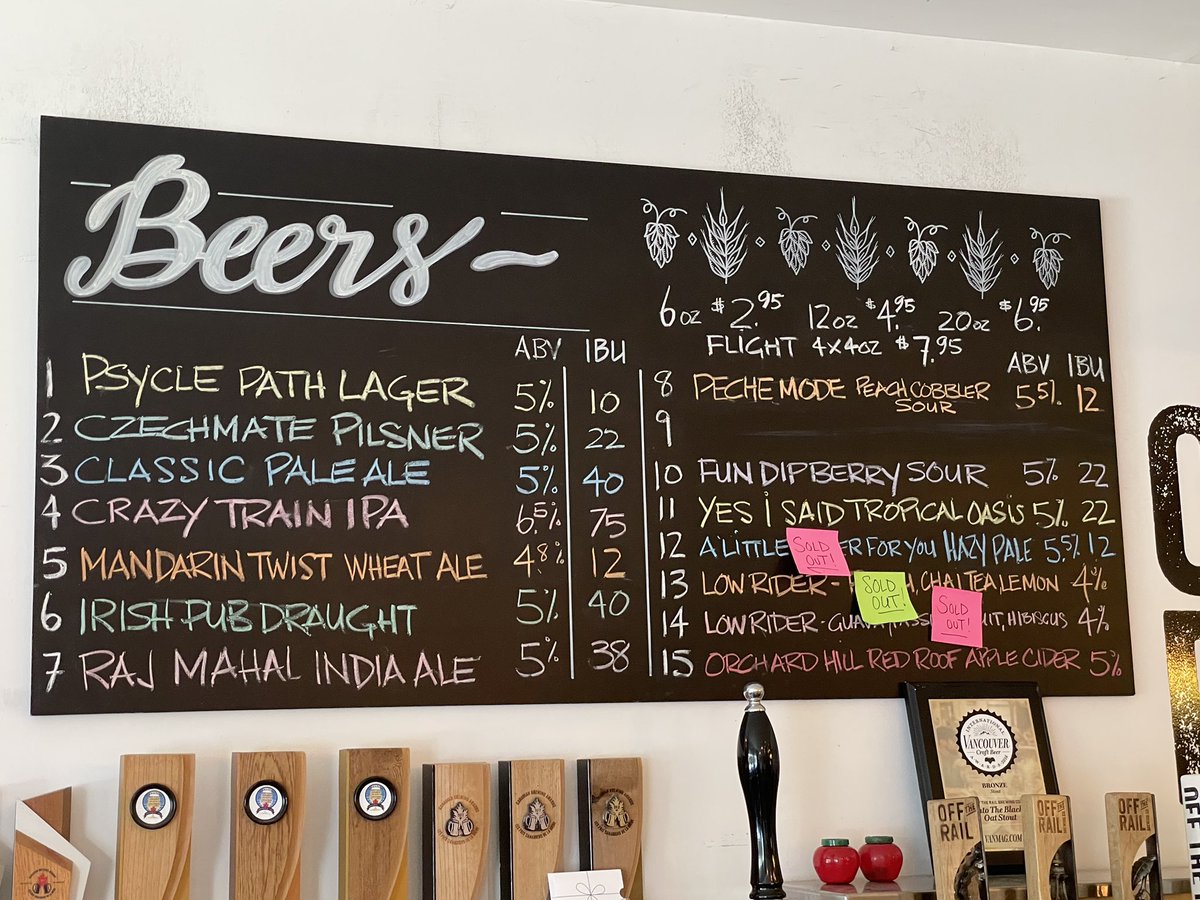 Beers
6oz $2.95 12oz $4.95 20oz $6.95
FLIGHT 4x4oz $7.95
ABV IBU
1 PSYCLE PATH LAGER 5% 10
2 CZECHMATE PILSNER 5% 22
3 CLASSIC PALE ALE 5% 40
4 CRAZY TRAIN IPA 6.5% 75
5 MANDARIN TWIST WHEAT ALE 4.8% 12
6 IRISH PUB DRAUGHT 5% 40
7 RAJ MAHAL INDIA ALE 5% 38
ABV IBU
8 PECHE MODE PEACH COBBLER SOUR 5.5% 12
9
10 FUN DIP BERRY SOUR 5% 22
11 YES I SAID TROPICAL OASIS 5% 22
12 A LITTLE FOR YOU HAZY PALE 5.5% 12
13 LOW RIDER - CHAI TEA, LEMON 4%
14 LOW RIDER - HIBISCUS 4%
15 ORCHARD HILL RED ROOF APPLE CIDER 5%
SOLD OUT!
SOLD OUT!
SOLD OUT!
INTERNATIONAL
VANCOUVER
Craft Beer
AWARDS
BRONZE
Stout
Into The Black
Oat Stout
VANMAG.COM
OFF THE RAIL
OFF THE RAIL
OFF THE RAIL
OFF THE